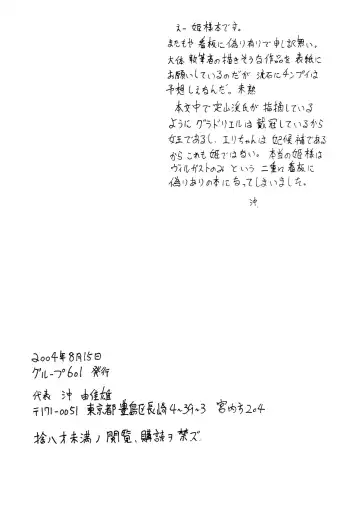 えー 姫様本です。
またもや 看板に偽りありで申し訳無い。
大体 執筆者の描きそうな作品を 表紙に
お願いしているのだが 流石にチンプイは
予想しえなんだ。未熟
本文中で 定山渓氏が 指摘している
ように グラドリエルは 戴冠しているから
女王であるし、エリちゃんは 妃候補である
から これも姫ではない。 本当の姫様は
ヴィルガストのみ という 二重に看板に
偽りありの本になってしまいました。
沖
2004年8月15日
グループ601 発行
代表 沖 由佳雄
〒171-0051 東京都豊島区長崎4-39-3 宮内方204
捨八才未満ノ閲覧、購読ヲ禁ズ